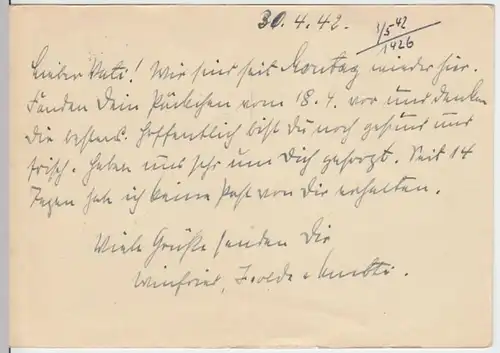 30. 4. 42.
1/5 42
1926
Lieber Vati! Wir sind seit Montag wieder hier.
Fanden Dein Päckchen vom 18. 4. vor und danken
Dir bestens. Hoffentlich bist Du noch gesund und
frisch. Haben uns sehr um Dich gesorgt. Seit 14
Tagen hab ich keine Post von Dir erhalten.
Viele Grüße senden Dir
Winfried, Isolde u. Mutti.